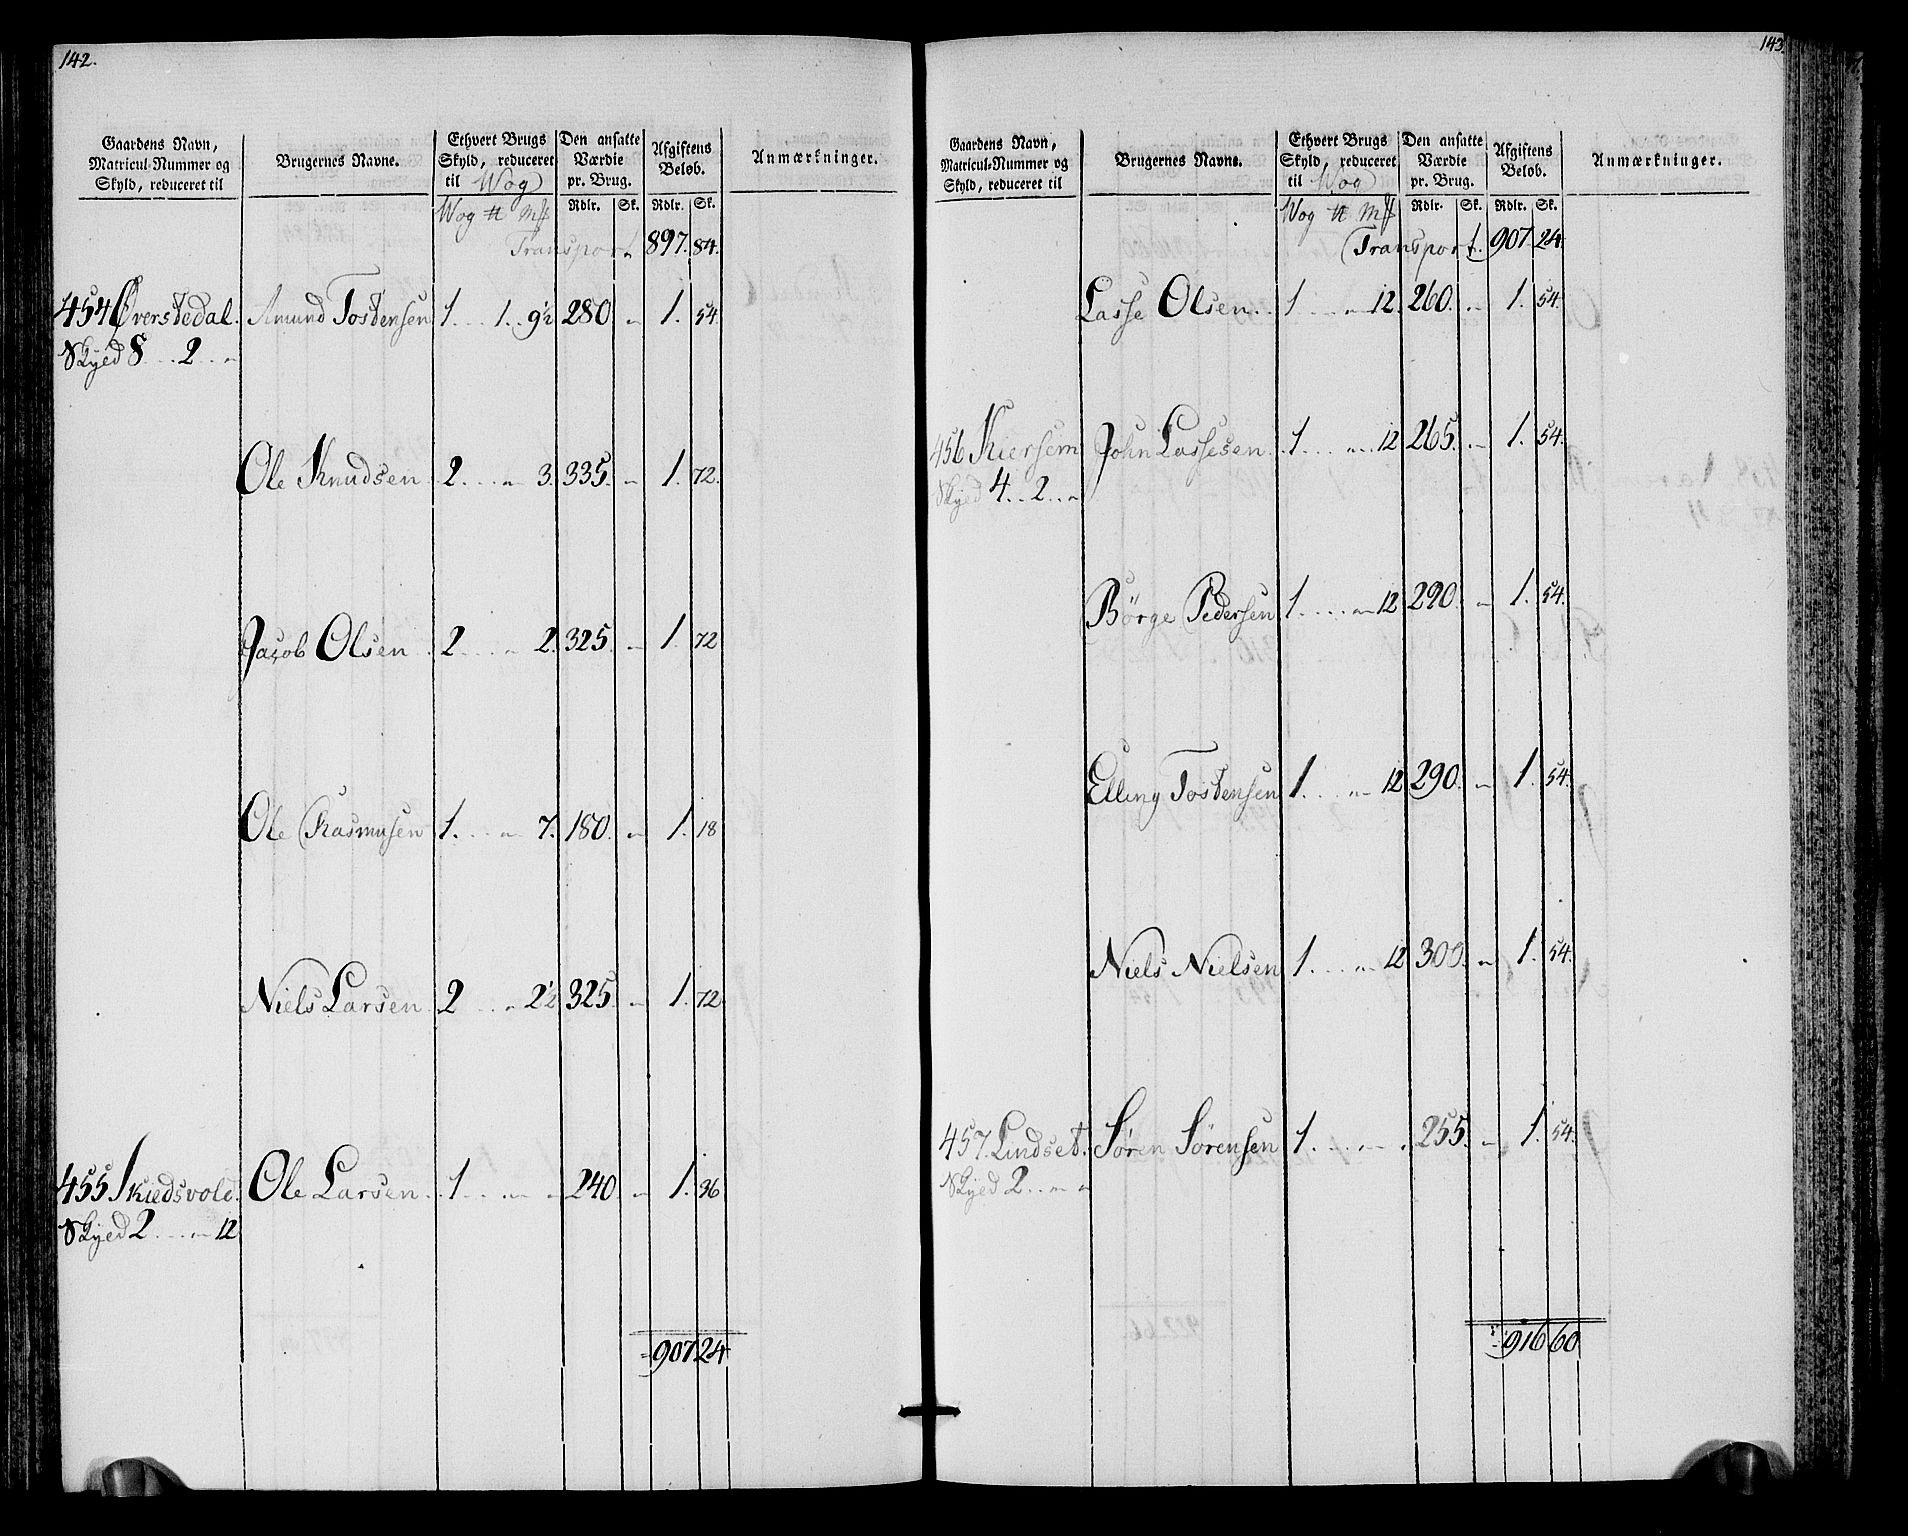 142.
Gaardens Navn, Matricul-Nummer og Skyld, reduceret til
Brugernes Navne.
Ethvert Brugs Skyld, reduceret til Wog
Den ansatte Værdie pr. Brug.
Afgiftens Beløb.
Anmærkninger.
Wog ℔ Mk Rdlr. Sk. Rdlr. Sk.
Transport. 897. 84.
454 Øverstedal. Amund Tostensen 1 . . . 1 . . 9½ 280. „ 1. 54.
Skyed 8 . . . 2 . . „
Ole Knudsen 2 . . . „ 3. 335. „ 1. 72.
Jacob Olsen 2 . . . „ 2. 325. „ 1. 72
Ole Rasmusen 1. . . . „ 7. 180. „ 1. 18
Niels Larsen 2 . . . „ 2½ 325. „ 1. 72
455 Skiedsvold. Ole Larsen 1 . . . „ „ 240. „ 1. 36
Skyed 2 . . . „ 12
907 24
143.
Gaardens Navn, Matricul-Nummer og Skyld, reduceret til
Brugernes Navne.
Ethvert Brugs Skyld, reduceret til Wog
Den ansatte Værdie pr. Brug.
Afgiftens Beløb.
Anmærkninger.
Wog ℔ Mk Rdlr. Sk. Rdlr. Sk.
Transport. 907. 24.
Lasse Olsen. 1 . . . „ 12. 260. „ 1. 54.
456 Kiersem John Lassesen 1. . . . „ 12 265. „ 1. 54.
Skyed 4 . . 2 . . „
Börge Pedersen 1. . . . „ 12 290. „ 1. 54.
Elling Tostensen 1. . . . „ 12 290. „ 1. 54.
Niels Nielsen 1. . . . „ 12 300. „ 1. 54.
457. Lindset. Søren Sörensen 1. . . . „ . 255. „ 1. 54.
Skyed 2 . . „ „
916 60